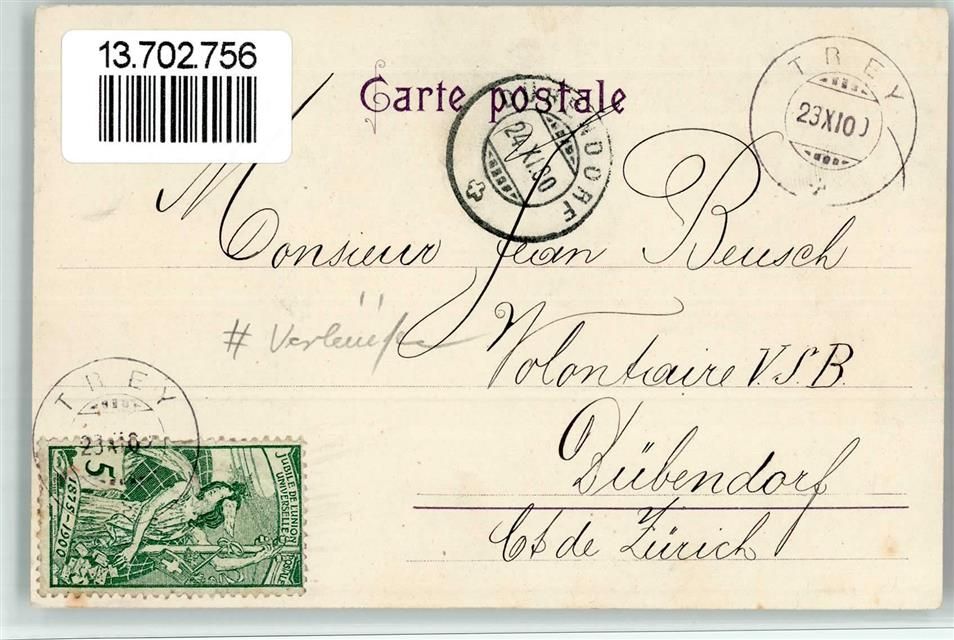 13.702.756
Carte postale
DÜBENDORF
24.XI.00
TREY
23 XI 00
Monsieur Jean Reusch
Volontaire V.S.B.
Dübendorf
Ct de Zürich
TREY
23 XI 0
JUBILÉ DE L'UNION
POSTALE
UNIVERSELLE
5
1875-1900